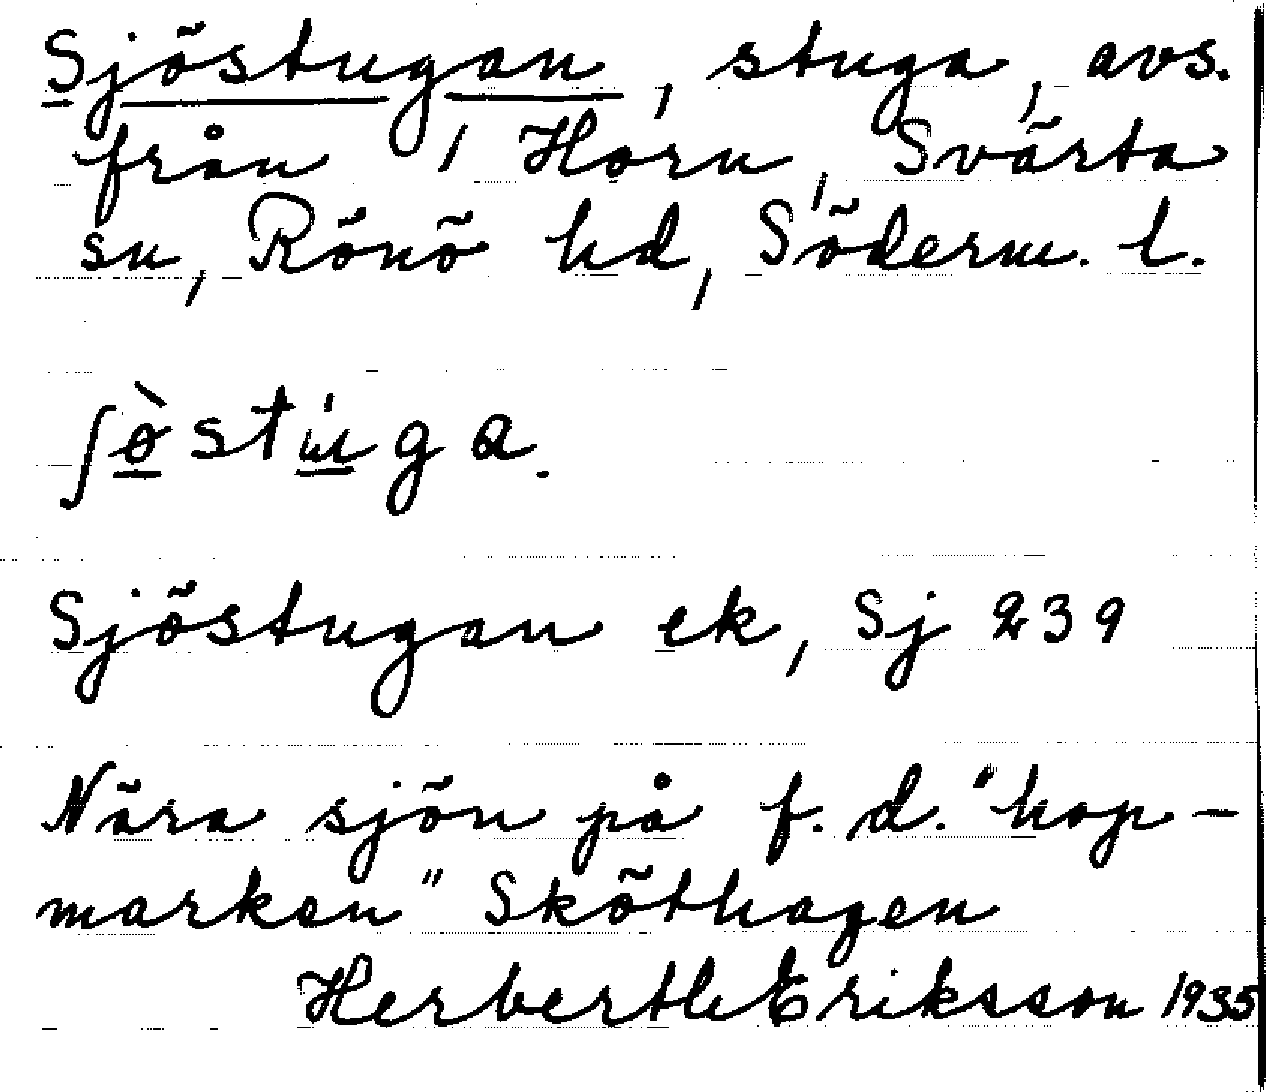 Sjöstugan, stuga, avs.
från Horn, Svärta
sn, Rönö hd, Söderm. l.
ʃø̀stu̇ga.
Sjöstugan ek, Sj 239
Nära sjön på f. d. "hop-
marken" Sköthagen
Herberth Eriksson 1935